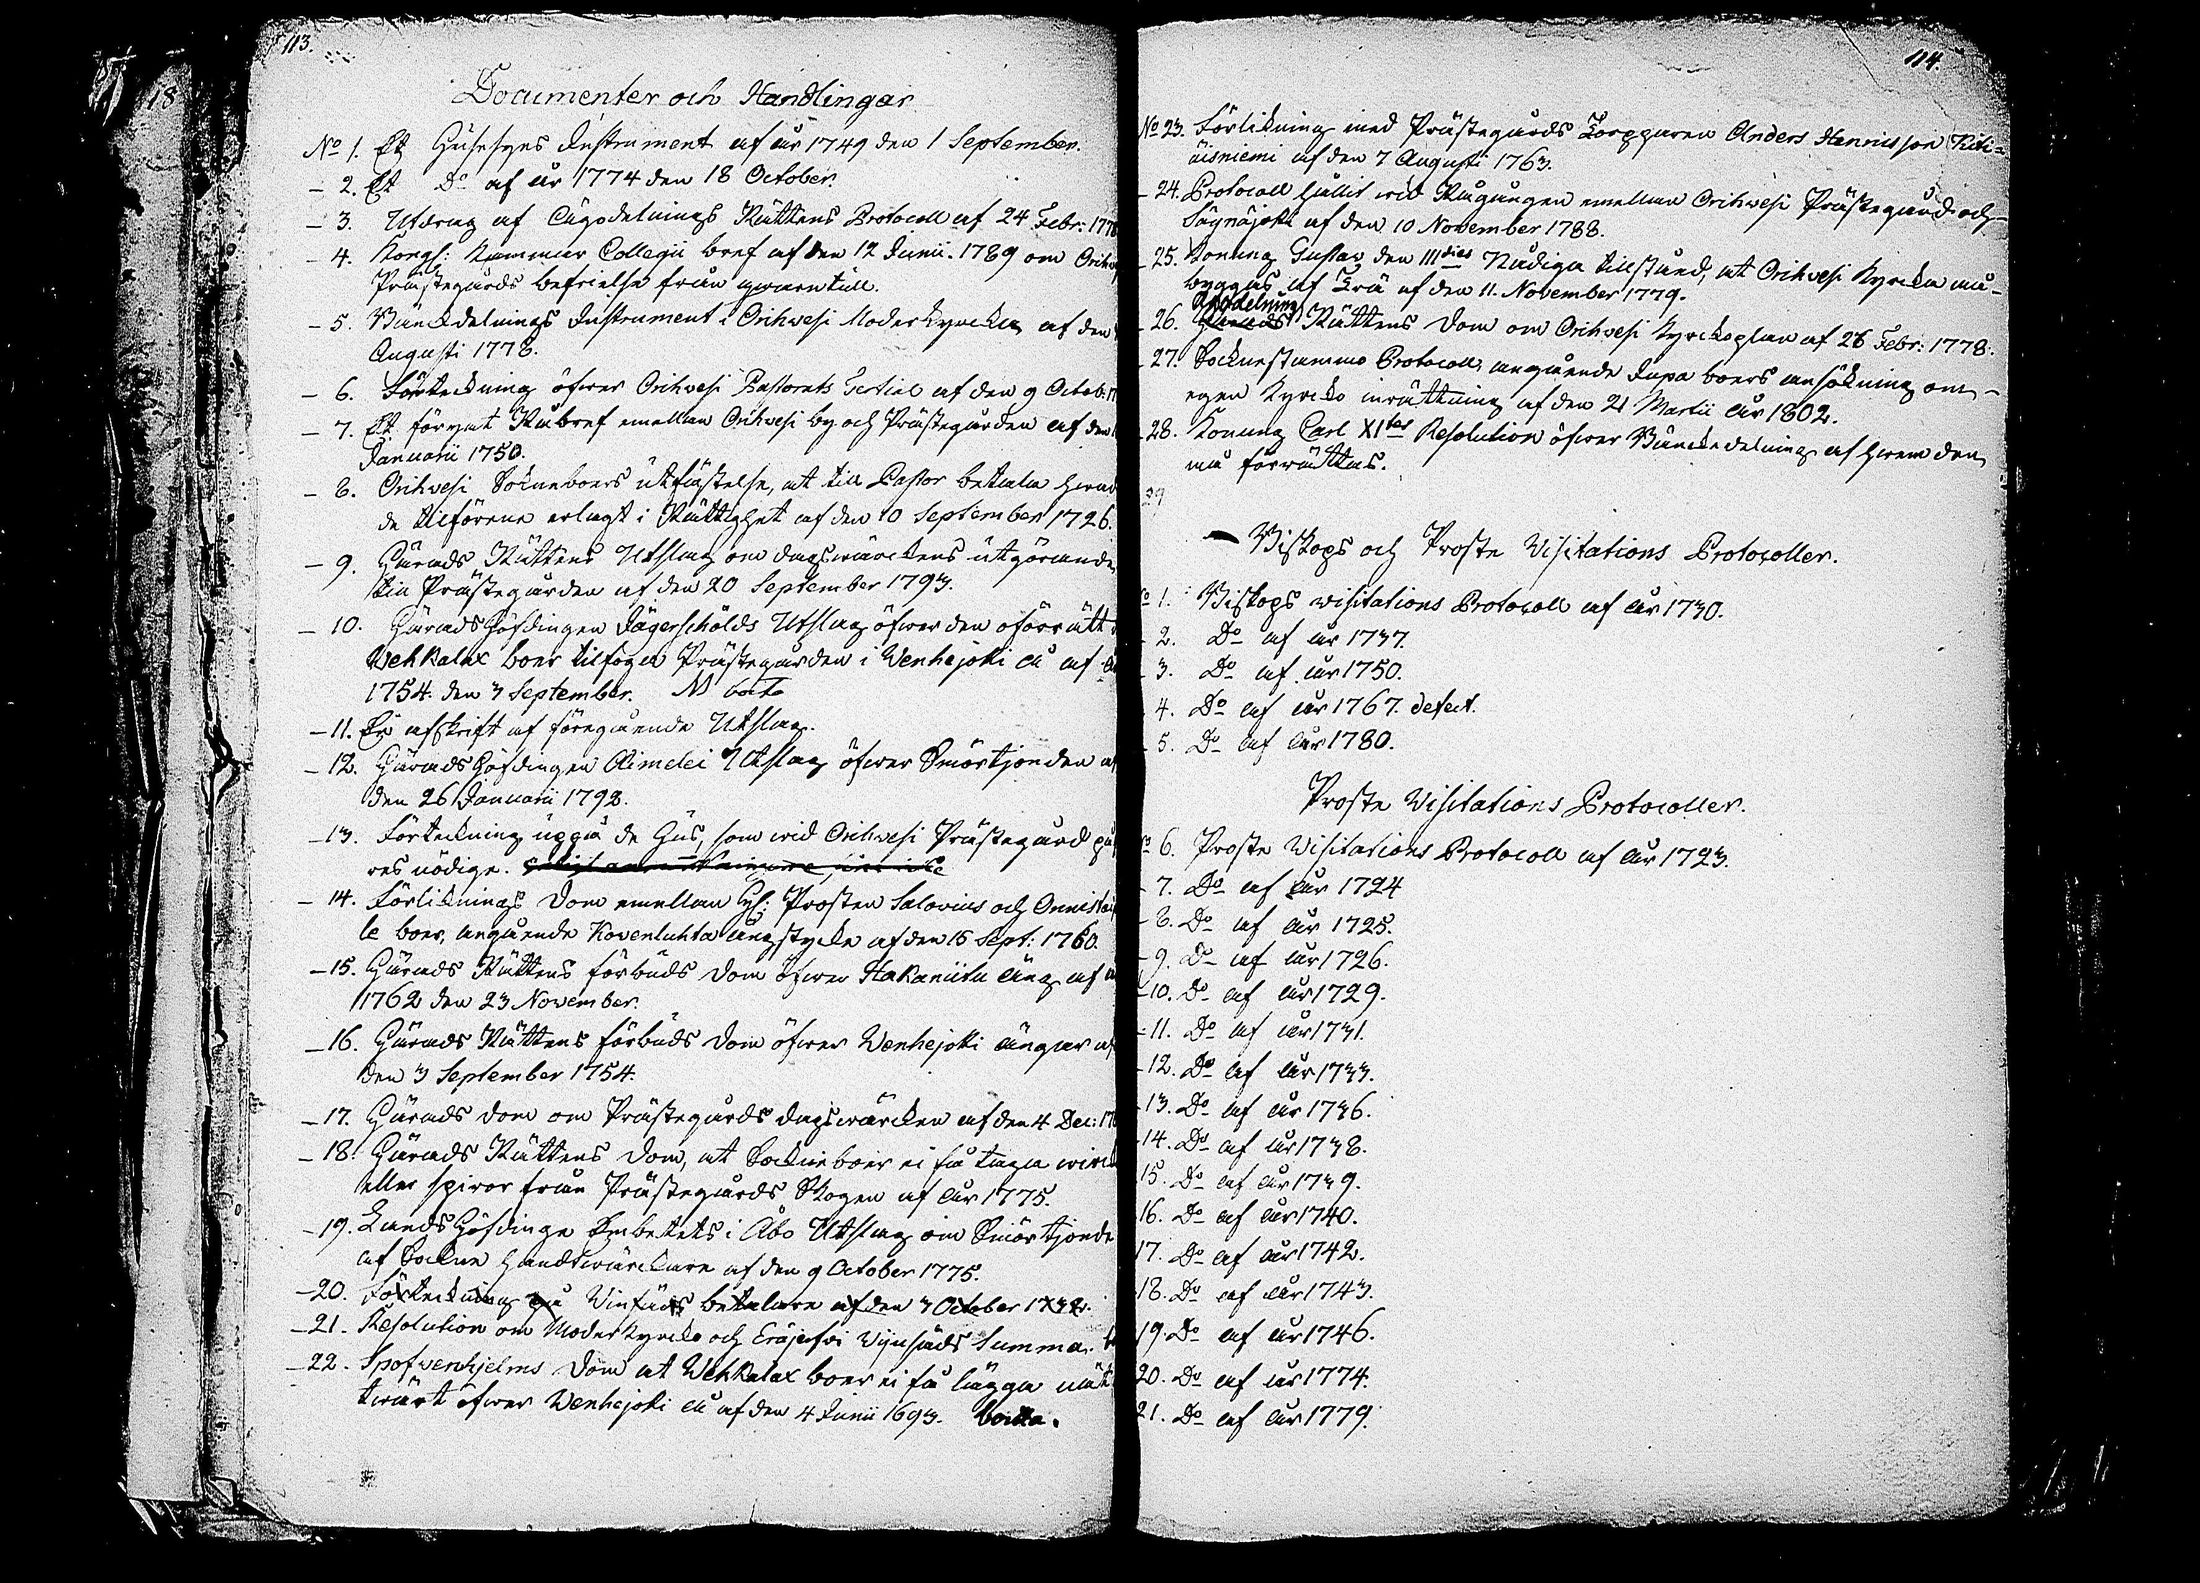 113.
Documenter och Handlingar
No 1. Et Huusesyns Instrument af år 1749 den 1 September.
- 2. Et Do af år 1774 den 18 October.
- 3. Utdrag af Ägodelnings Rättens Protocoll af 24 Febr: 1778
- 4. Kongl: Kammar Collegii bref af den 12 Junii 1789 om Orihve
Prästegårds befrielse från qwarntull.
- 5. Bänckdelnings Instrument i Orihvesi Moderkyrcka af den
Augusti 1778.
- 6. Förteckning öfwer Orihvesi Pastorats Tertial af den 9 Octob: 17
- 7. Et förent Råbref emellan Orihvesi by och Prästegården af den
Januarii 1750.
- 8. Orihvesi Sokneboers utfästelse, at till Pastor betala hwad
de tilförene erlagt i Rättighet af den 10 September 1726.
- 9. Härads Rättens Utslag om dagswärckens utgörande
till Prästegården af den 20 September 1793.
- 10. Häradshöfdingen Jägerschölds Utslag öfwer den oförrätt
Wehkalax boer tilfogen Prästegården i Wenhejoki å af
1754. den 3 September. borta
- 11. En afskrift af föregående Utslag.
- 12. Häradshöfdingen Aimelei Utslag öfwer Smörtjonden af
den 26 Januarii 1792.
- 13. Förteckning uppå de Hus, som wid Orihvesi Prästegård på
res nödige.
- 14. Förliknings Dom emellan Hl: Prosten Salovius och Onnistai
le boer, angående Kovenluhta ängstycke af den 16 Sept: 1760.
- 15. Härads Rättens förbuds Dom öfwer Hakaniitu äng af
1762 den 23 November.
- 16. Härads Rättens förbuds Dom öfwer Wenhejoki ängar af
den 3 September 1754.
- 17. Härads Dom om Prästegårds dagswärcken af den 4 Dec: 17
- 18. Härads Rättens Dom, at Sockneboer ei få taga
eller spiror från Prästegårds Skogen af år 1775.
- 19. Landshöfdinge Embetets i Åbo Utslag om Smör tjonde
af Sockne Handtwärckare af den 9 October 1775.
- 20. Förteckning på Vinsäds betalare af den 3 October 1732.
- 21. Resolution om Moderkyrcko och Eräjerfvi Vijnsäds Summa.
- 22. Spofvenhjelms Dom at Wehkalax boer ei få lägga nät
twärt öfwer Wenhejoki å af den 4 Junii 1693. borta.
114.
No 23. Förlikning med Prästegårds Torpparen Anders Hennisson Riti=
äisniemi af den 7 Augusti 1763.
- 24. Protocoll hållit wid Rågången emellan Orihvesi Prästegård och
Sägnäjoki af den 10 November 1788.
- 25. Konung Gustav den IIIdies Nådiga tillstånd, at Orihvesi Kyrcka må
byggas af Trä af den 11. November 1779.
Ägodelning
- 26. Härads Rättens Dom om Orihvesi Kyrckoplan af 28 Febr: 1778.
- 27. Socknestämmo Protocoll, angående Jupa boers ansökning om
egen Kyrcko inrättning af den 21 Martii år 1802.
- 28. Konung Carl XItes Resolution öfwer Bänckedelning af hwem den
må förrättas.
29
Biskops och Proste Visitations Protocoller.
No 1. Biskops visitations Protocoll af år 1730.
- 2. Do af år 1737.
- 3. Do af år 1750.
- 4. Do af år 1767. defect.
- 5. Do af år 1780.
Proste Visitations Protocoller.
No 6. Proste Visitations Protocoll af år 1723.
- 7. Do af år 1724
- 8. Do af år 1725.
- 9. Do af år 1726.
- 10. Do af år 1729.
- 11. Do af år 1731.
- 12. Do af år 1733.
- 13. Do af år 1736.
- 14. Do af år 1738.
15. Do af år 1739.
16. Do af år 1740.
17. Do af år 1742.
18. Do af år 1743.
19. Do af år 1746.
20. Do af år 1774.
21. Do af år 1779.